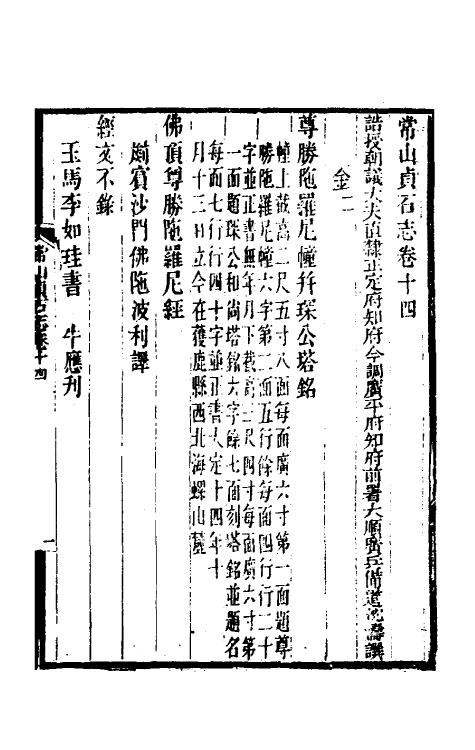 常山貞石志卷十四
誥授朝議大夫直隸正定府知府今調廣平府知府前署大順廣兵備道沈濤譔
金二
尊勝陁羅尼幢幷琛公塔銘
幢上截高二尺五寸八面每面廣六寸第一面題尊
勝陁羅尼幢六字第二面五行餘每面四行行二十
字並正書無年月下截高二尺四寸每面廣六寸第
一面題琛公和尚塔銘六字餘七面刻塔銘並題名
每面七行行四十字並正書大定十四年十
月十三日立今在獲鹿縣西北海螺山麓
佛頂尊勝陁羅尼經
罽賓沙門佛陁波利譯
經文不錄
王馬李如珪書 牛應刋
常山貞石志卷十四
一